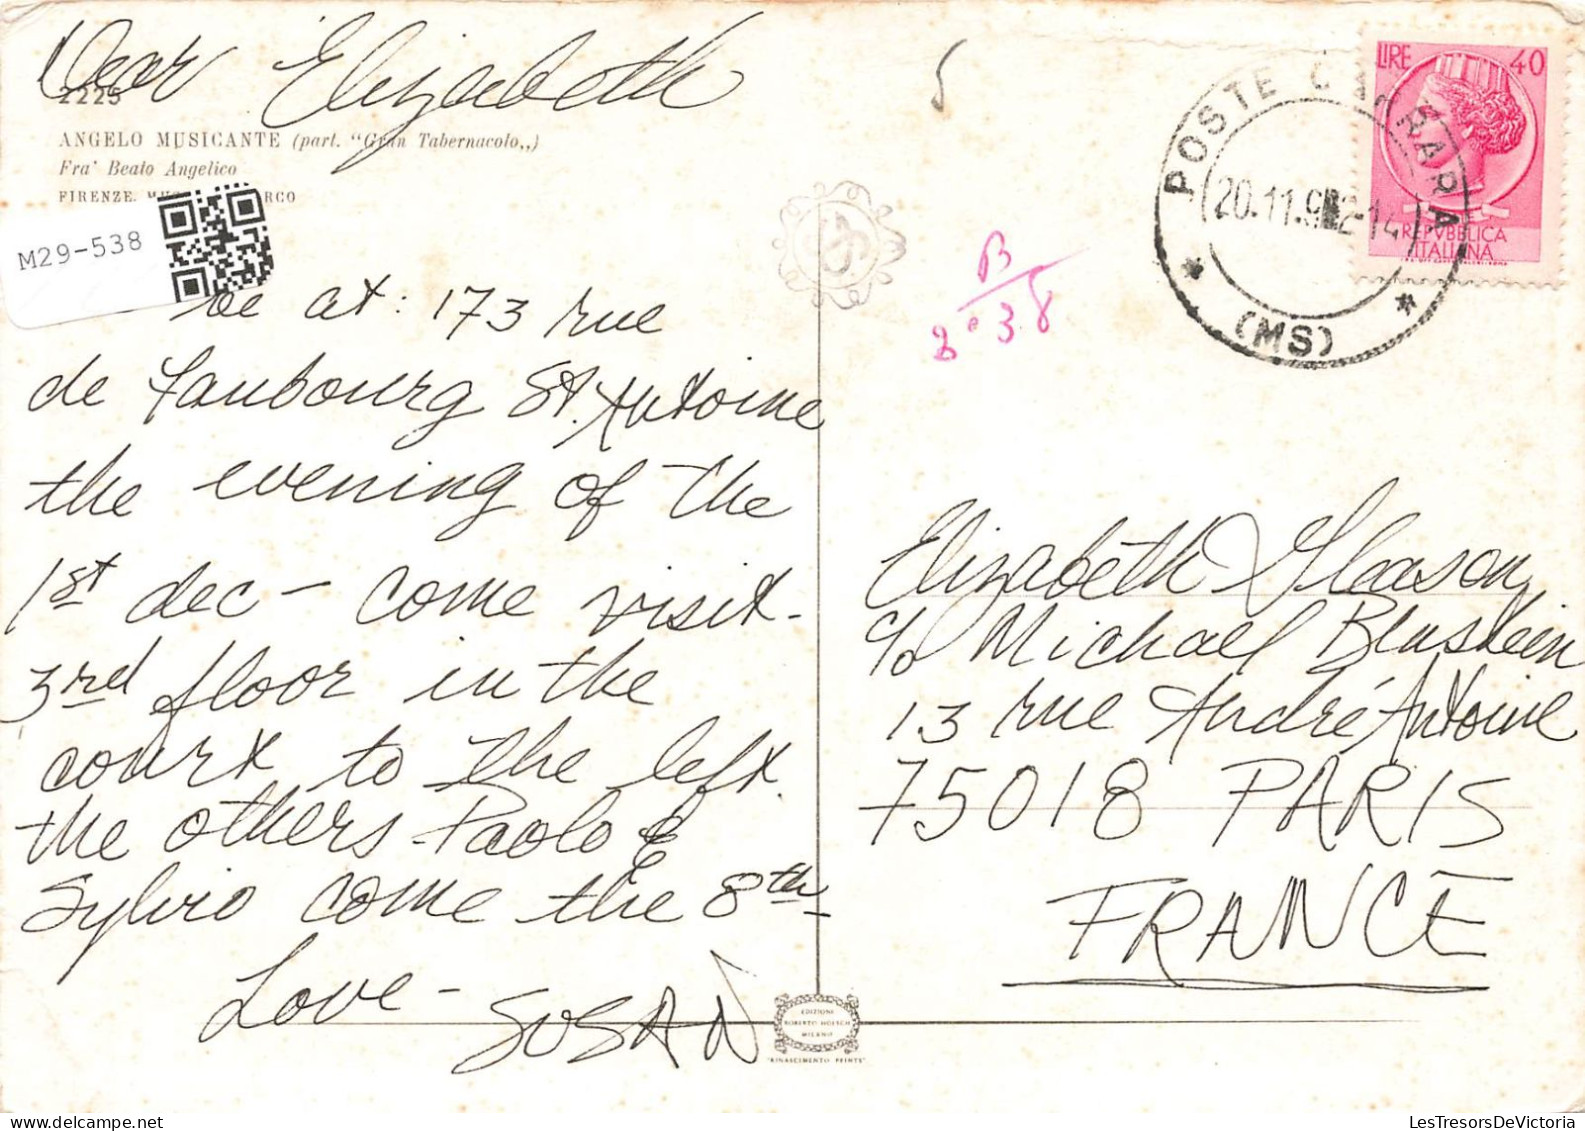 Dear Elizabeth
2225
ANGELO MUSICANTE (part. "Gran Tabernacolo,,)
Fra' Beato Angelico
FIRENZE.
M29-538
be at: 173 rue
de Faubourg St. Antoine
the evening of the
1st dec - come visit -
3rd floor in the
court to the left.
the others - Paolo &
Sylvio come the 8th -
Love - SUSAN
5
B
8° 3.8
POSTE CARRARA
20.11.
2-14
(MS)
LIRE 40
REPVBBLICA
ITALIANA
Elizabeth Gleason
c/o Michael
13 rue André Antoine
75018 PARIS
FRANCE
EDIZIONI
ROBERTO HOESCH
MILANO
"RINASCIMENTO PRINTS"
LesTresorsDeVictoria.com